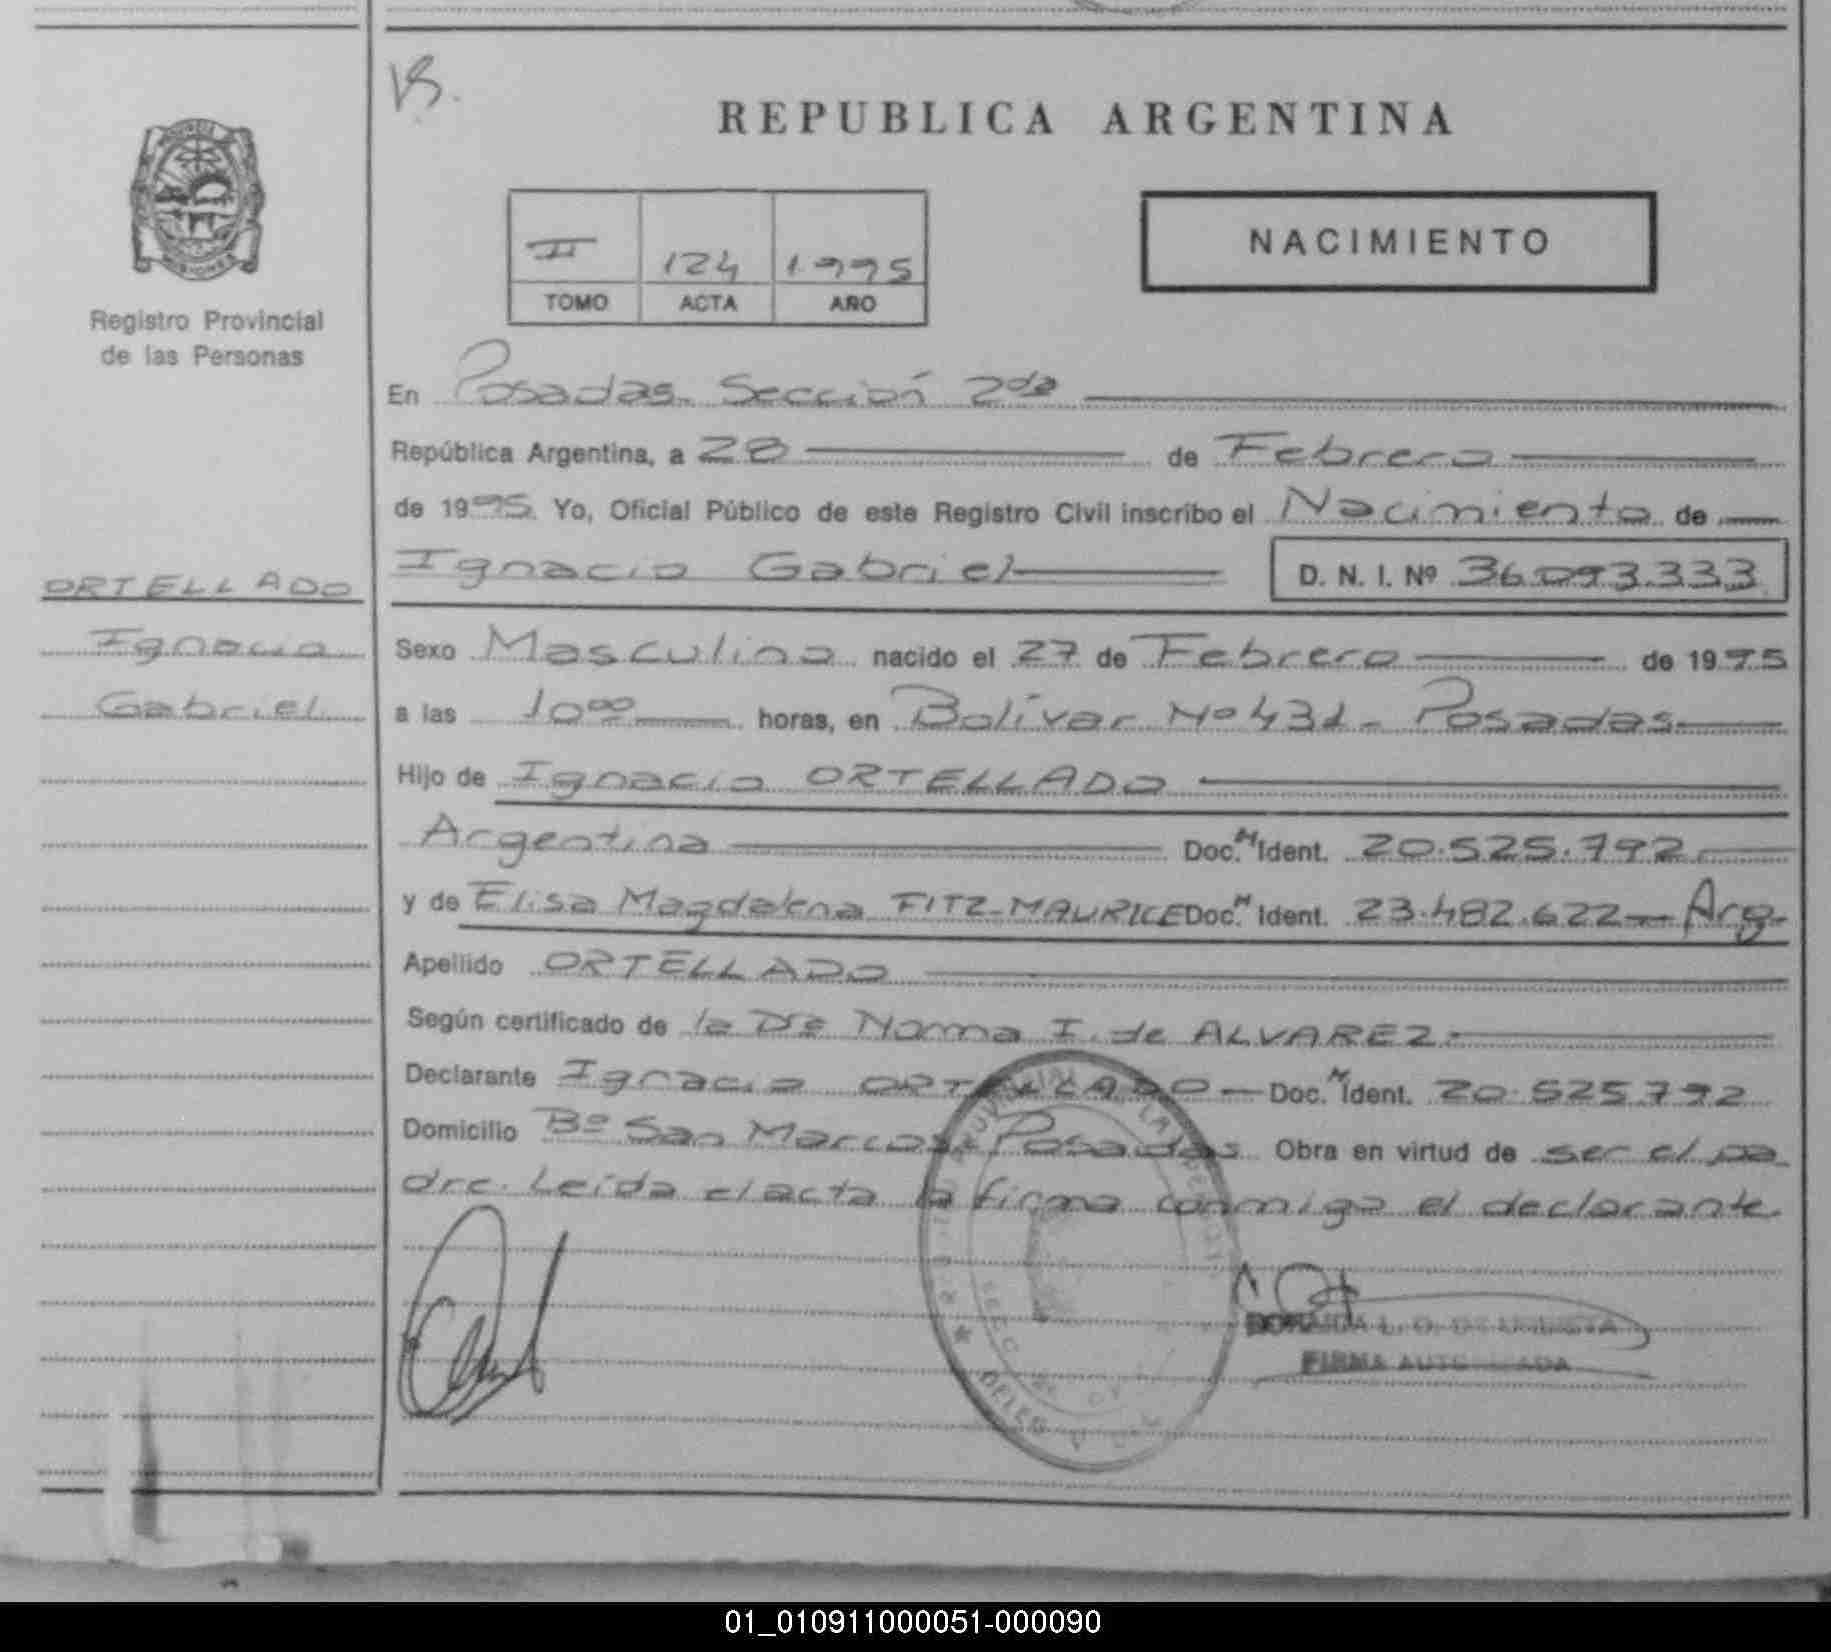 VS.
REPUBLICA ARGENTINA
MISIONES
Registro Provincial
de las Personas
II 124 1.995
TOMO ACTA AÑO
NACIMIENTO
En Posadas. Sección 2da
República Argentina, a 28 de Febrero
de 1995. Yo, Oficial Público de este Registro Civil inscribo el Nacimiento de
Ignacio Gabriel D. N. I. Nº 36.093.333
ORTELLADO
Ignacio
Gabriel
Sexo Masculino nacido el 27 de Febrero de 1995
a las 10oo horas, en Bolívar Nº 431 - Posadas
Hijo de Ignacio ORTELLADO
Argentina Doc. N Ident. 20.525.792
y de Elisa Magdalena FITZ-MAURICE Doc. N Ident. 23.482.622 - Arg-
Apellido ORTELLADO
Según certificado de la Dra Norma I. de ALVAREZ
Declarante Ignacio ORTELLADO - Doc. N Ident. 20.525.792
Domicilio Bº San Marcos. Posadas. Obra en virtud de ser el pa
dre. Leída el acta la firma conmigo el declarante.
FIRMA AUTORIZADA
01_010911000051-000090